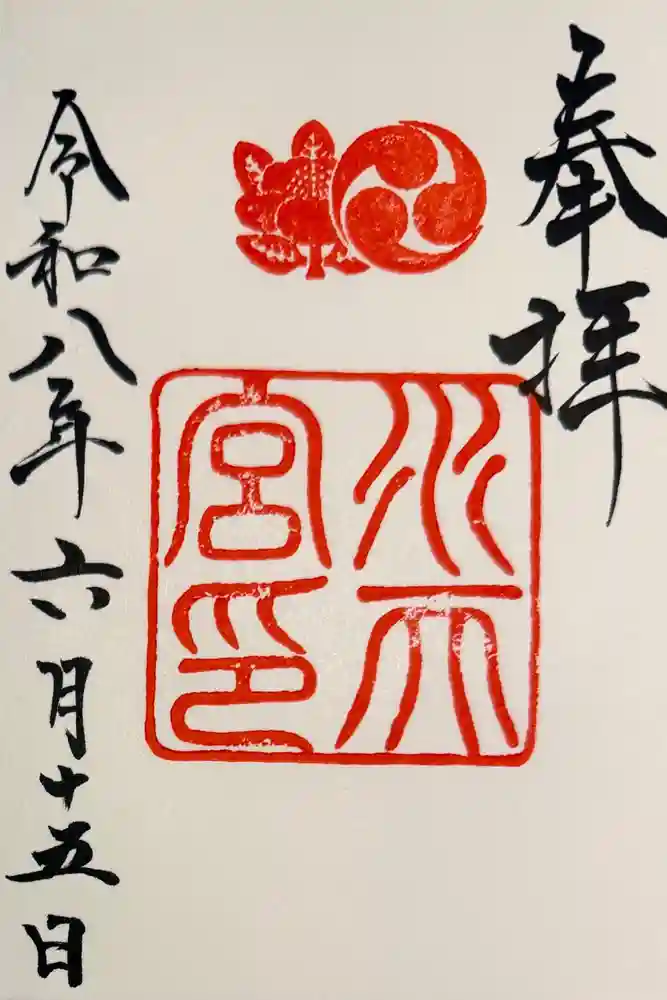 奉拝
水天
宮印
令和八年六月十五日